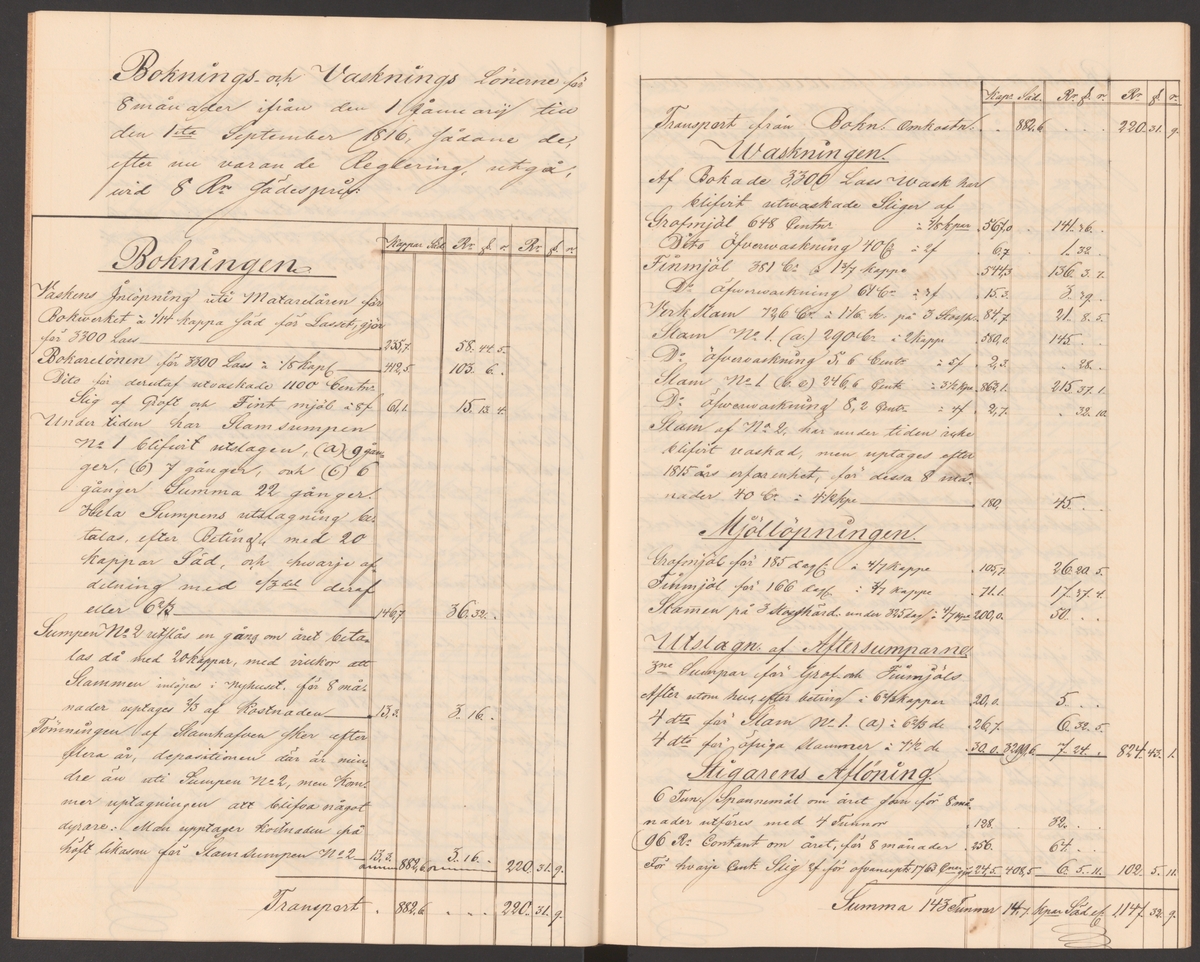 Boknings- och Vasknings Lönerne för
8 månader ifrån den 1 Januarij till
den 1sta September 1816, Sådane de,
efter nu varande Reglering, utgå,
vid 8 Rdr Sädespris.
Kappar Säd. Rdr ß. r. Rdr ß. r.
Bokningen.
Vaskens Inlöpning uti Matarelåren för
Bokwerket à 1/14 kappa Säd för Lasset, gjör
för 3300 Lass 235,7 58. 44. 5.
Bokarelönen för 3300 Lass à 1/8 kap 412,5 103. 6.
Dito för derutaf utvaskade 1100 Centnr
Slig af Groft och Fint mjöl à 8f 61,1. 15. 13. 4.
Under tiden har Slamsumpen
No 1 blifvit utslagen, (a) 9 gån-
ger, (b) 7 gånger, och (c) 6
gånger Summa 22 gånger.
Hela Sumpens utslagning be-
talas, efter Beting, med 20
kappar Säd, och hwarje af-
delning med 1/3 del deraf
eller 6 2/3 146,7 36. 32.
Sumpen No 2 utslås en gång om året beta-
las då med 20 kappar, med vilkor att
Slammen inlöpes i nyhuset. för 8 må-
nader uptages 2/3 af kostnaden 13,3. 3. 16.
Tömningen af Slamhafven sker efter
flera år, depositionen där är min-
dre än uti Sumpen No 2, men kom-
mer uptagningen att blifva något
dyrare: Man upptager kostnaden på
höft likasom för Slamsumpen No 2 13,3. 882,6 3. 16. 220. 31. 9.
Transport . 882,6 . . . 220. 31. 9.
Kapr Säd. Rdr ß. r. Rdr ß. r.
Transport från Bokn. Omkostn. . . 882,6 . . . 220. 31. 9.
Waskningen.
Af Bokade 3300 Lass Wask har
blifvit utwaskade Sliger af
Grofmjöl 648 Centnr à 7/8 kpar 567,0 141. 36.
Dito Öfverwaskning 40 Cr à 2f 6,7. 1. 32.
Finmjöl 381 Cr à 1 3/7 kappe 544,3 136. 3. 7.
Do öfverwaskning 61 Cr à 3f 15,3. 3. 39.
Verkslam 726 Cr à 1 1/6 k. på 84,7 21. 8. 5.
Slam No 1. (a.) 290 Cr à 2 kappe 580,0 145.
Do öfverwaskning 5,6 Centr à 5f 2,3. . 28.
Slam No 1 (b. c) 246,6 Centr à 3 1/2 kpe 863,1. 215. 37. 1.
Do öfverwaskning 8,2 Centr à 4f 2,7. . 32. 10.
Slam af No 2, har under tiden icke
blifvit vaskad, men uptages efter
1815 års erfarenhet, för dessa 8 må-
nader 40 Cr à 4 1/2 kpe 180, 45.
Mjöllöpningen.
Grofmjöl för 185 dagr à 4/7 kappe 105,7. 26. 20. 5.
Finmjöl för 166 dagr à 3/7 kappe 71,1. 17. 37. 4.
Slamen på 3 under 325 dag à 4/7 kpe 200,0. 50.
Utslagn. af Aftersumparne
3ne Sumpar för Grof och Finmjöls
After utom hus, efter beting à 6 2/3 kappar 20,0. 5.
4 dto för Slam No 1. (a) à 6 2/3 de 26,7. 6. 32. 5.
4 dto för öfriga slammer à 7 1/2 de 30,0. 3299,6. 7. 24. 824. 43. 1.
Stigarens Aflöning.
6 Tunr Spannemål om året som för 8 må-
nader utföres med 4 Tunnor 128. 32.
96 Rdr Contant om året, för 8 månader 256. 64.
För hvarje Centr Slig 2f för ofvanupte 1763 24,5. 408,5 6. 5. 11. 102. 5. 11.
Summa 143 Tunnor 14,7 kpar Säd 1147. 32. 9.